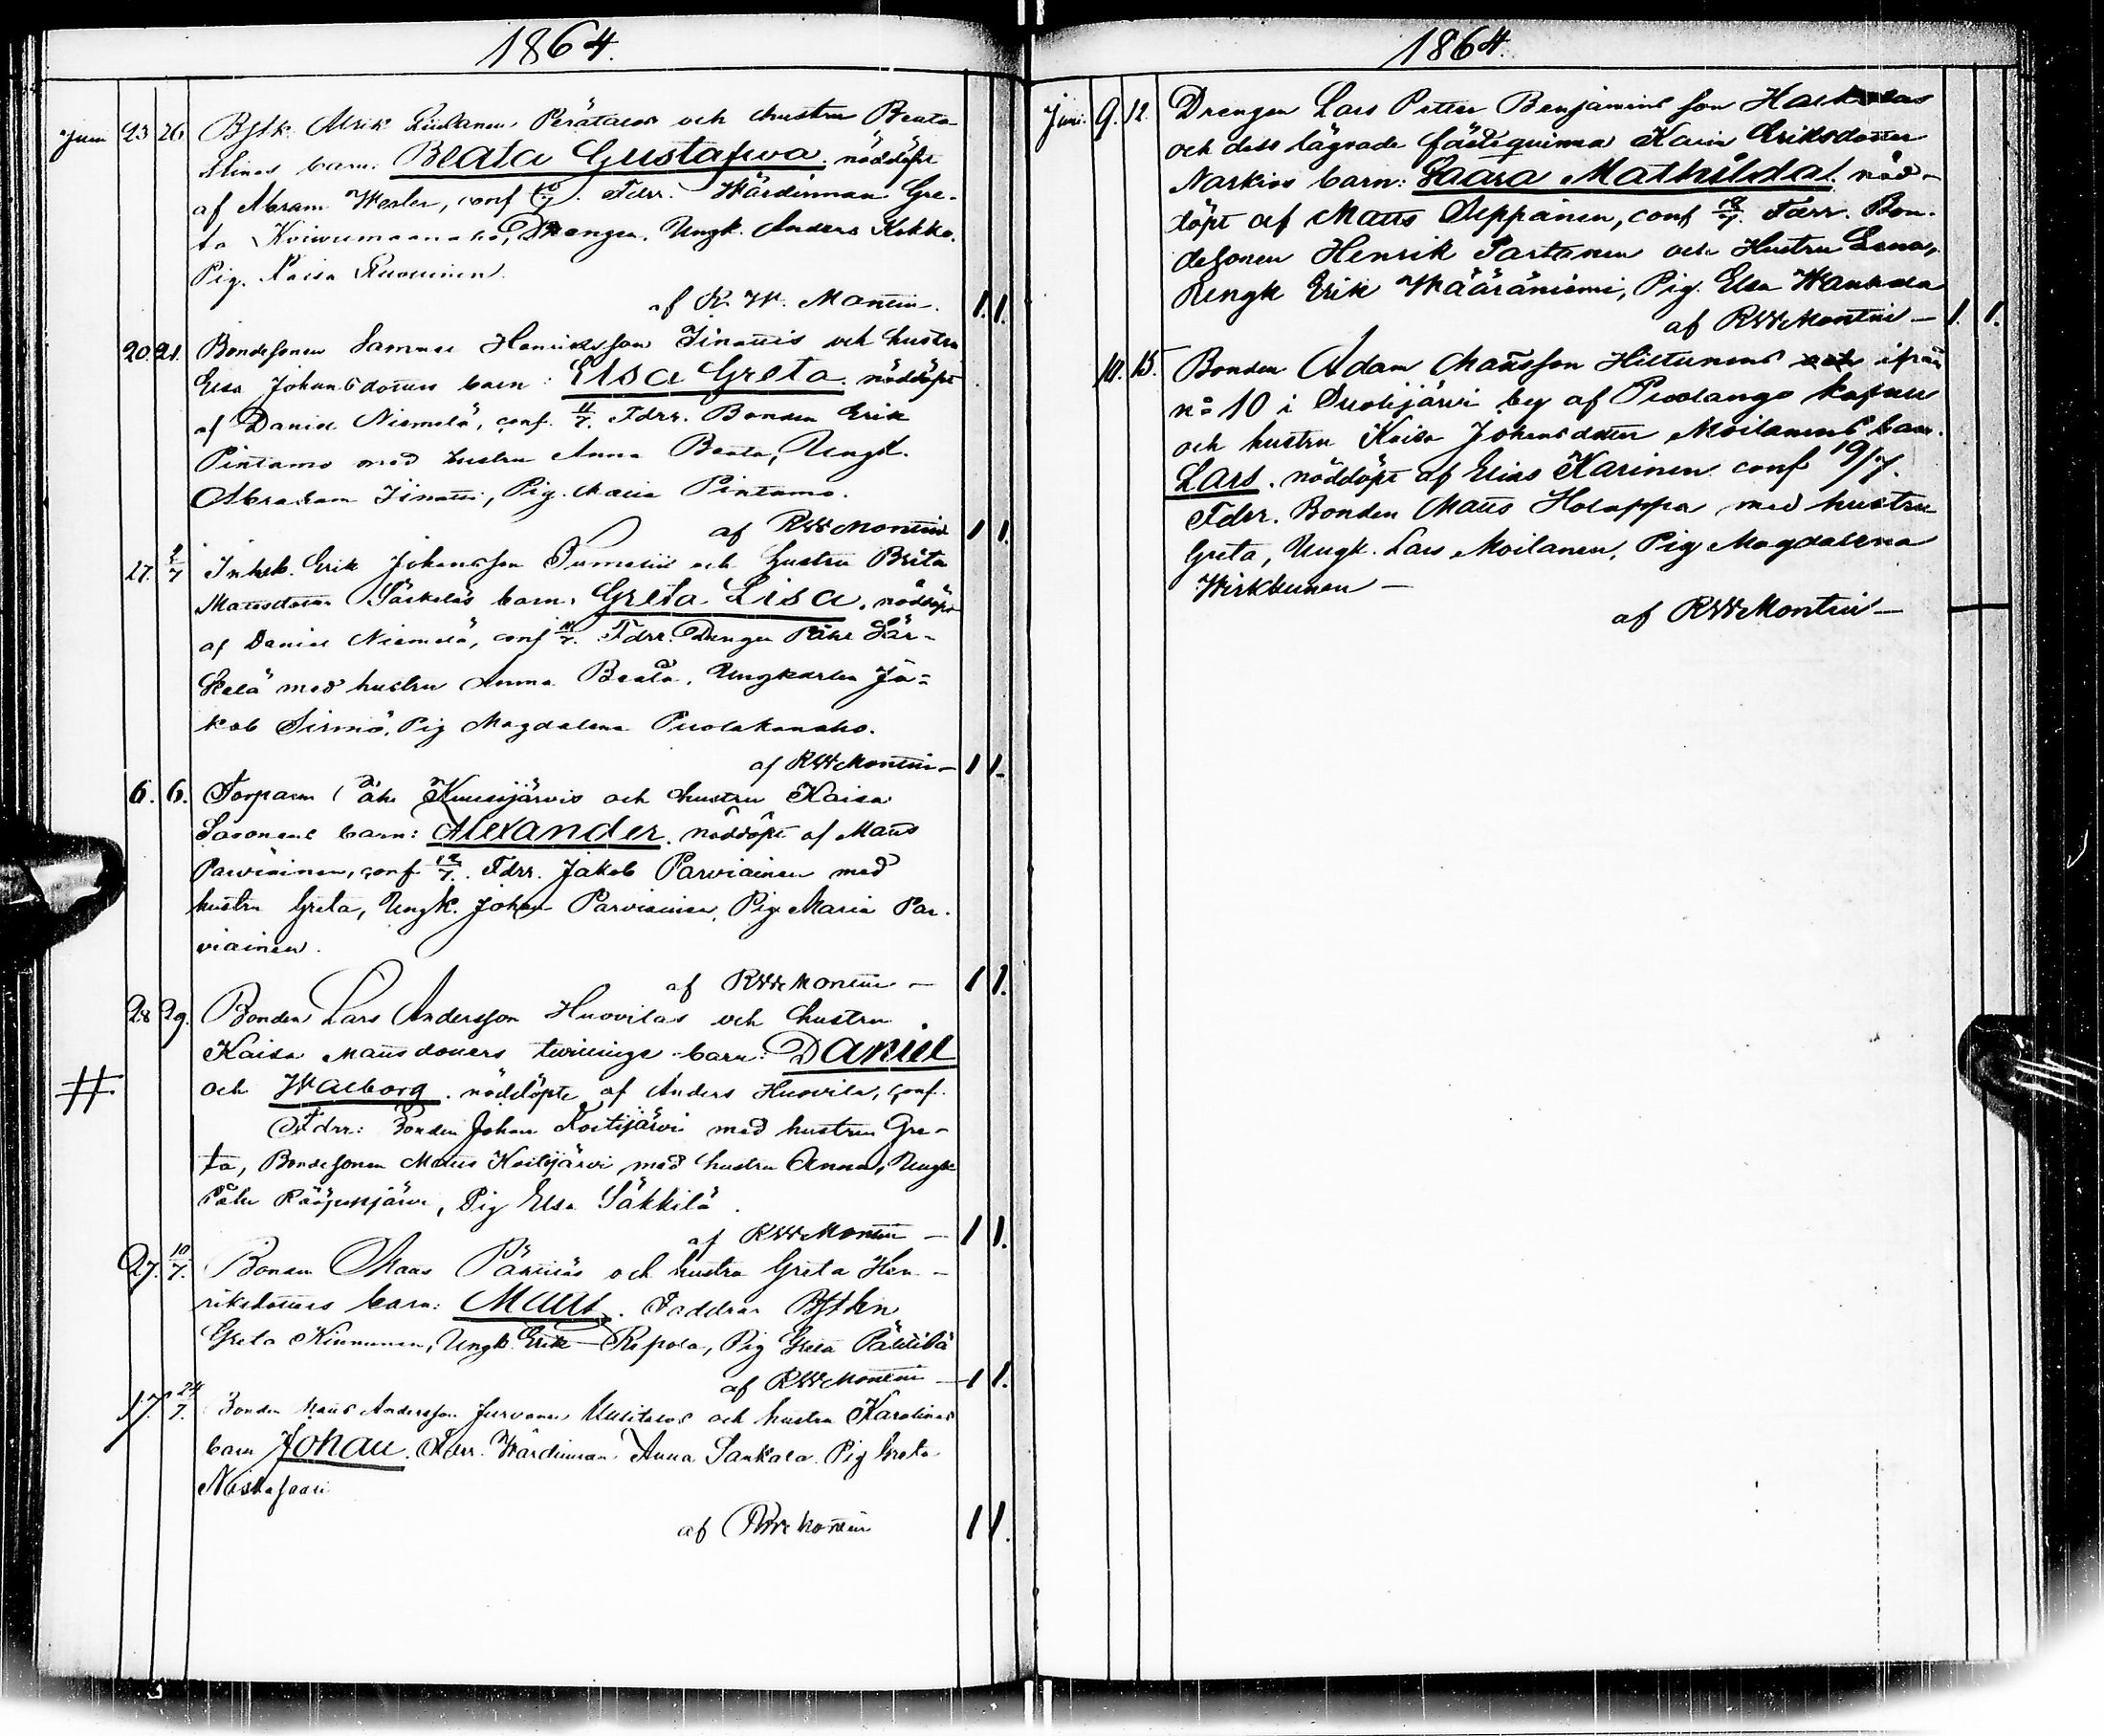 1864.
Juni 23 26. Bstk. Ulrik Perätalos och hustru Beata
barn. Beata Gustafwa. nöddöpt
af Abram Wesler, conf 10/7. Fdrr. Wärdinnan Gre-
ta Drengen, Ungk. Anders Kokko.
Pig. Kaisa
af R. W. Montin. 1. 1.
20. 21. Bondesonen Samuel Henriksson Iinattis och hustru
Elsa Johansdotters barn: Elsa Greta. nöddöpt
af Daniel Niemelä, conf. 11/7. Fdrr. Bonden Erik
Pintamo med hustru Anna Beata, Ungk.
Abraham Iinatti, Pig. Maria Pintamo.
af RWMontin 1 1.
27. 2/7 Inhsk. Erik Johansson och hustru Brita
Mattsdotter Särkeläs barn. Greta Lisa. nöddöpt
af Daniel Niemelä, conf 11/7. Fdrr. Drengen Påhl Sär-
kelä med hustru Anna Beata. Ungkarlen Ja-
kob Sirniö, Pig Magdalena Puolakanaho.
af RWMontin – 1 1.
6. 6. Torparn Påhl Kuusijärvis och hustru Kaisa
Sasonens barn: Alexander. nöddöpt af Matts
Parviainen, conf 12/7. Fdrr. Jakob Parviainen med
hustru Greta, Ungk. Johan Parviainen, Pig Maria Par-
viainen.
af RWMontin – 1 1.
28 29. Bonden Lars Andersson Huovilas och hustru
Kaisa Mattsdotters twillinge barn: Daniel
# och Walborg. nöddöpte af Anders Huovila, conf.
Fdrr: Bonden Johan Koitijärvi med hustru Gre-
ta, Bondesonen Matts Koitijärvi med hustru Anna, Ungk
Påhl Rääpysjärvi, Pig Elsa Säkkilä.
af RWMontin – 1 1.
27. 10/7. Bonden Mats Pätiläs och hustru Greta Hen-
riksdotters barn: Matts. Faddrar Bstkn
Greta Kinnunen, Ungk. Erik Repola, Pig Greta Pätilä
af RWMontin – 1 1.
17. 24/7. Bonden Mats Andersson Uusitalos och hustru Karolinas
barn Johan. Fdrr. Wärdinnan Anna Sankala. Pig Greta
af RWMontin 1 1.
1864.
Juni. 9. 12. Drengen Lars Petter Benjamins son
och dess lägrade fästequinna Karin Eriksdotter
Narkios barn: Saara Mathilda. nöd-
döpt af Matts Seppänen, conf 18/7. Fdrr. Bon-
desonen Henrik Partanen och Hustru Lena,
Rengk Erik Määräniemi, Pig. Elsa
af RWMontin – 1. 1.
10. 15. Bonden Adam Mattsson Hiltunens ifrån
no 10 i Suolijärvi by af Puolango kapell
och hustru Kaisa Johansdotter Moilanens barn.
Lars. nöddöpt af Elias Karinen conf 19/7.
Fdrr. Bonden Matts Holappa med hustru
Greta, Ungk. Lars Moilanen, Pig Magdalena
Wirkkunen –
af RWMontin –